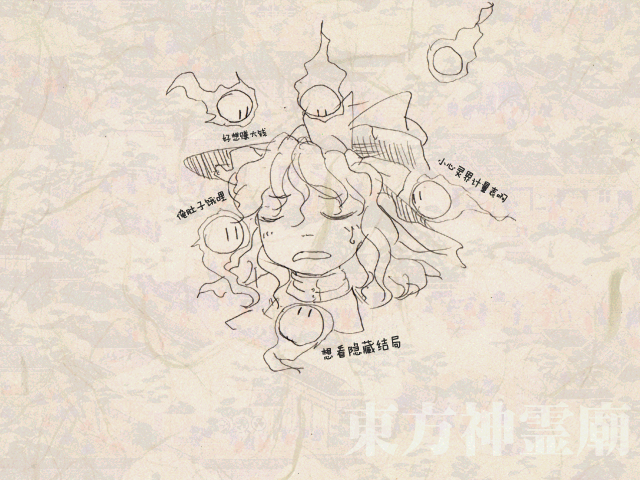 好想赚大钱
小心灵界计量表啊
俺肚子饿哩
想看隐藏结局
東方神霊廟